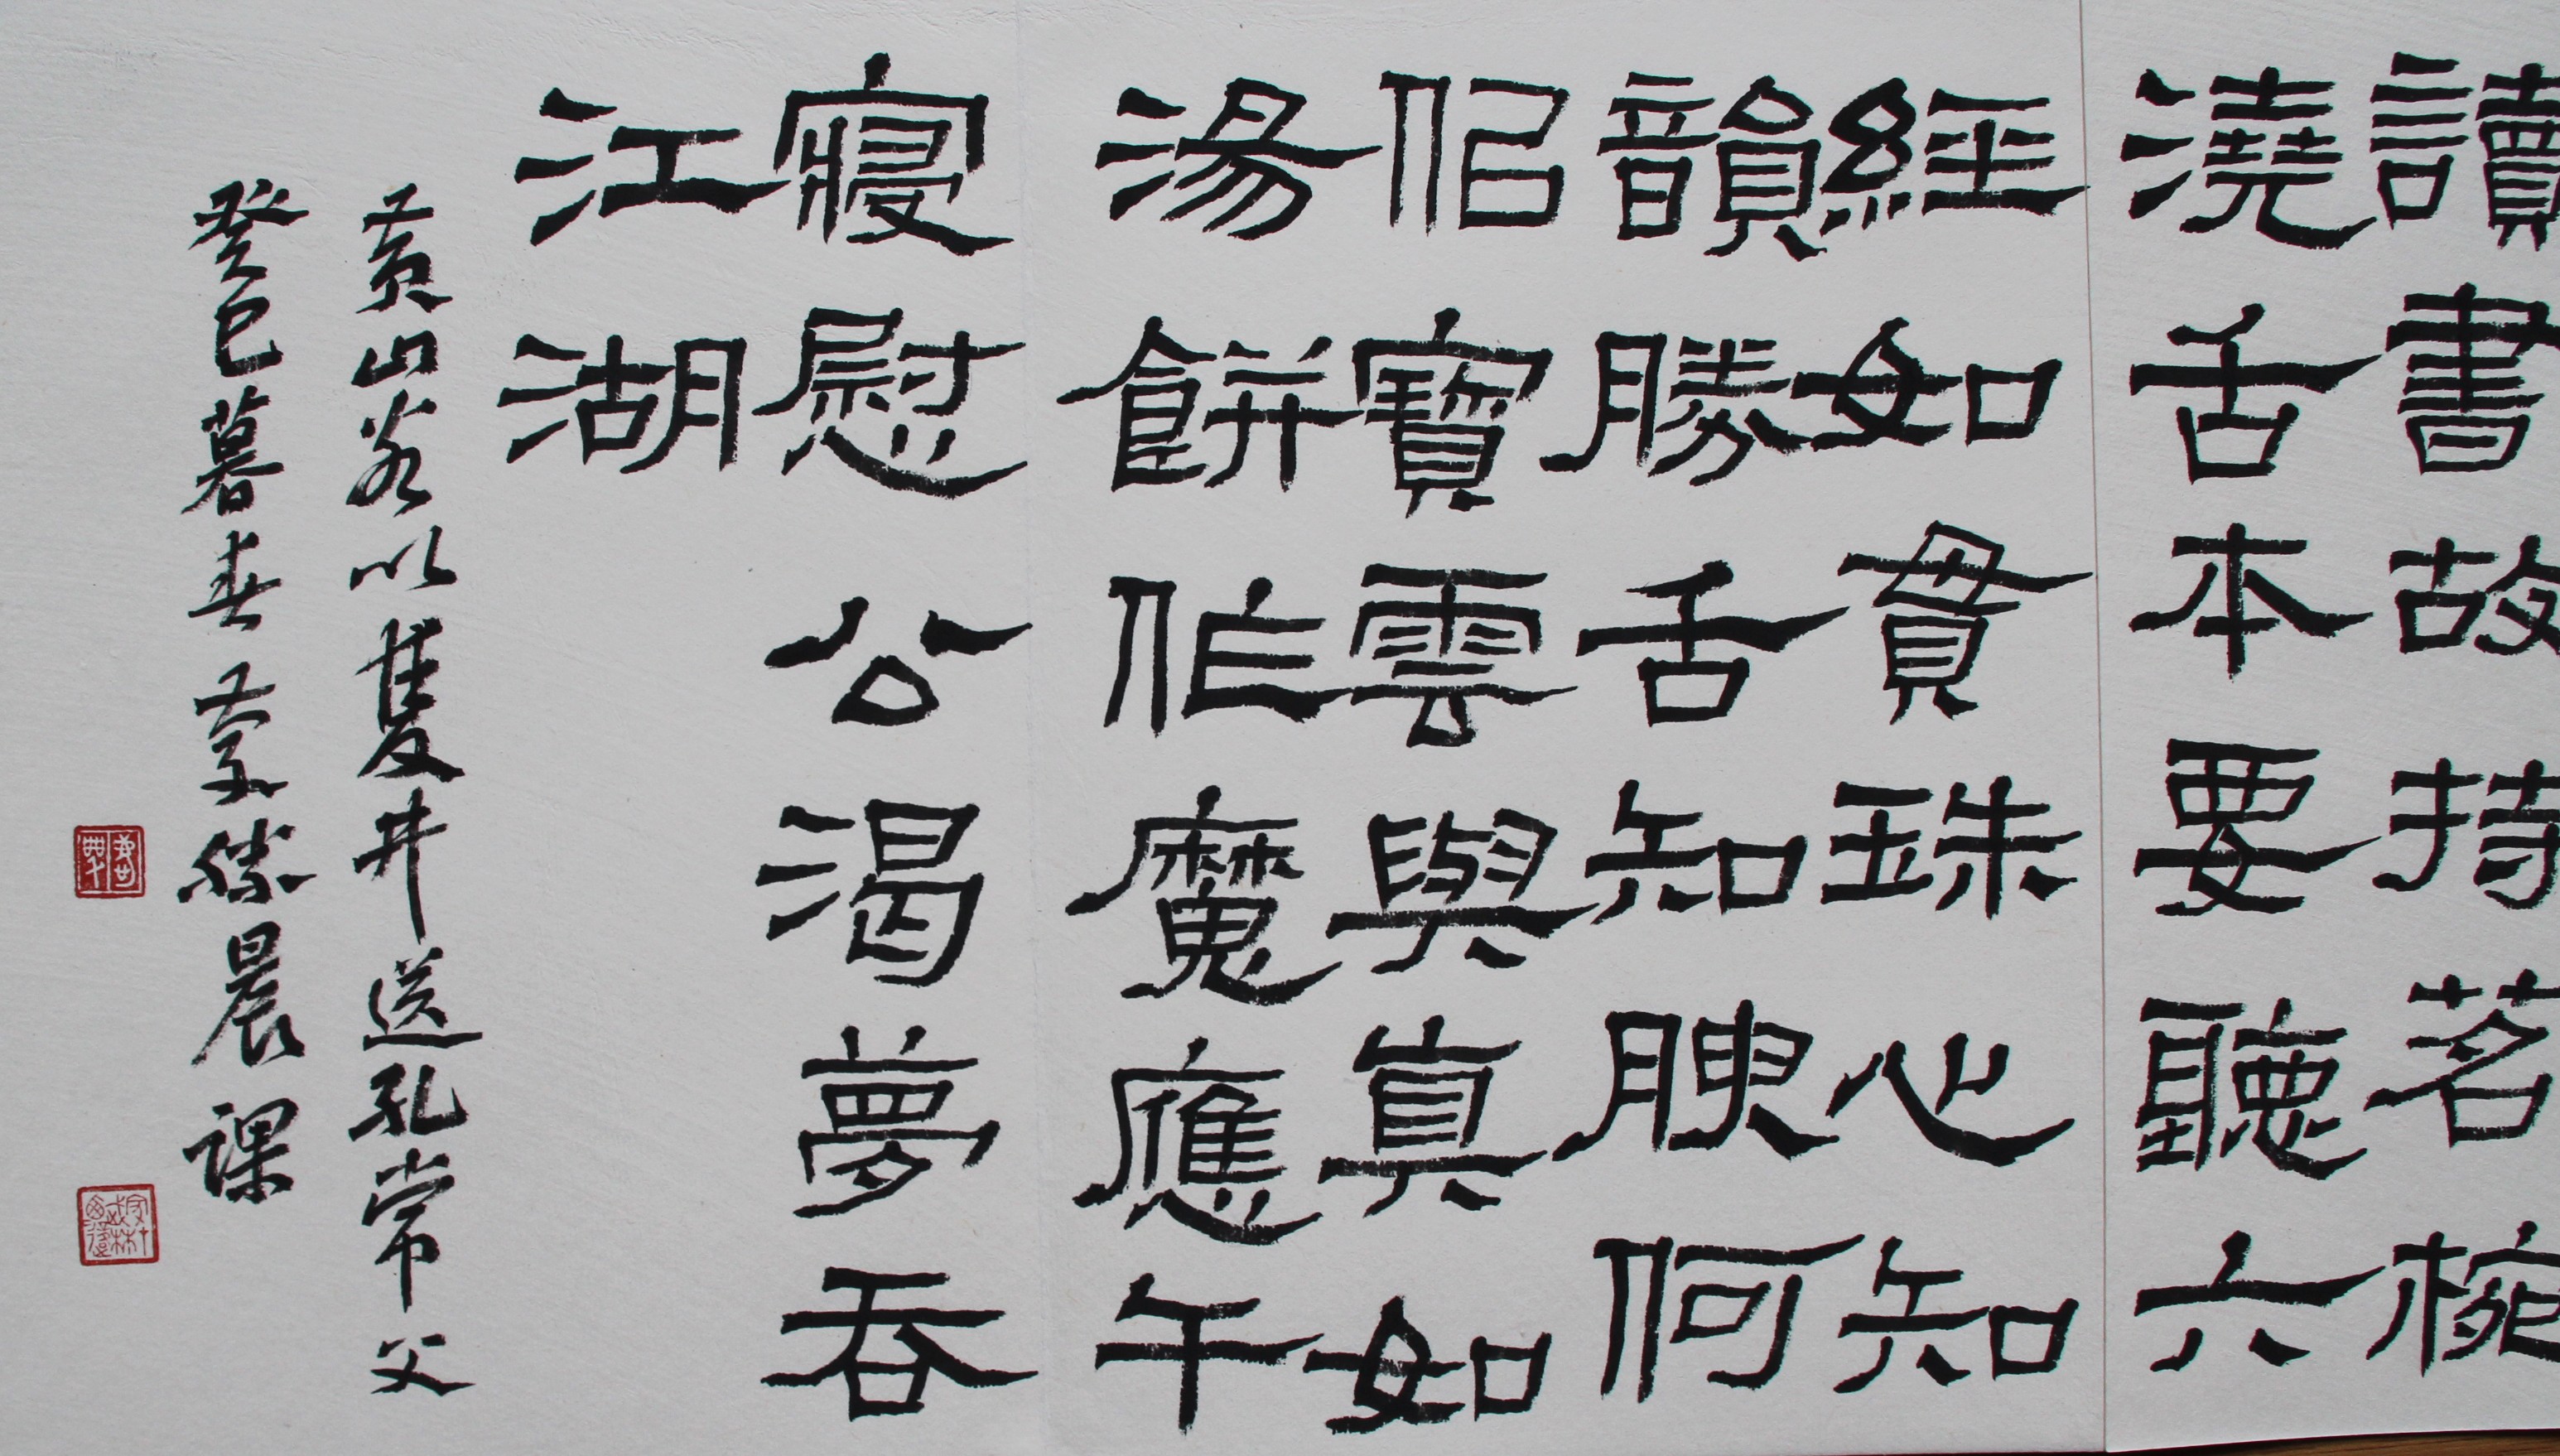 讀書故持茗椀
澆舌本要聽六
經如貫珠心知
韻勝舌知腴何
佀寶雲與真如
湯餅作魔應午
寢慰公渴夢吞
江湖
黃山谷以雙井送孔常父
癸巳暮春晨課